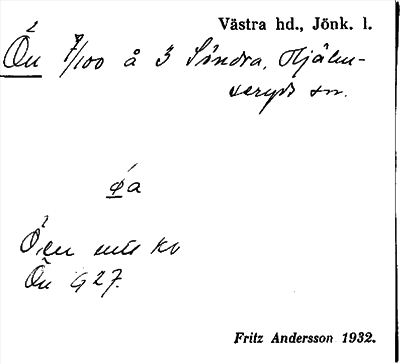 Västra hd., Jönk. l.
Ön 7/100 å 3 Söndra, Hjälm-
seryds sn.
øa
Öen
Ön G 27.
Fritz Andersson 1932.